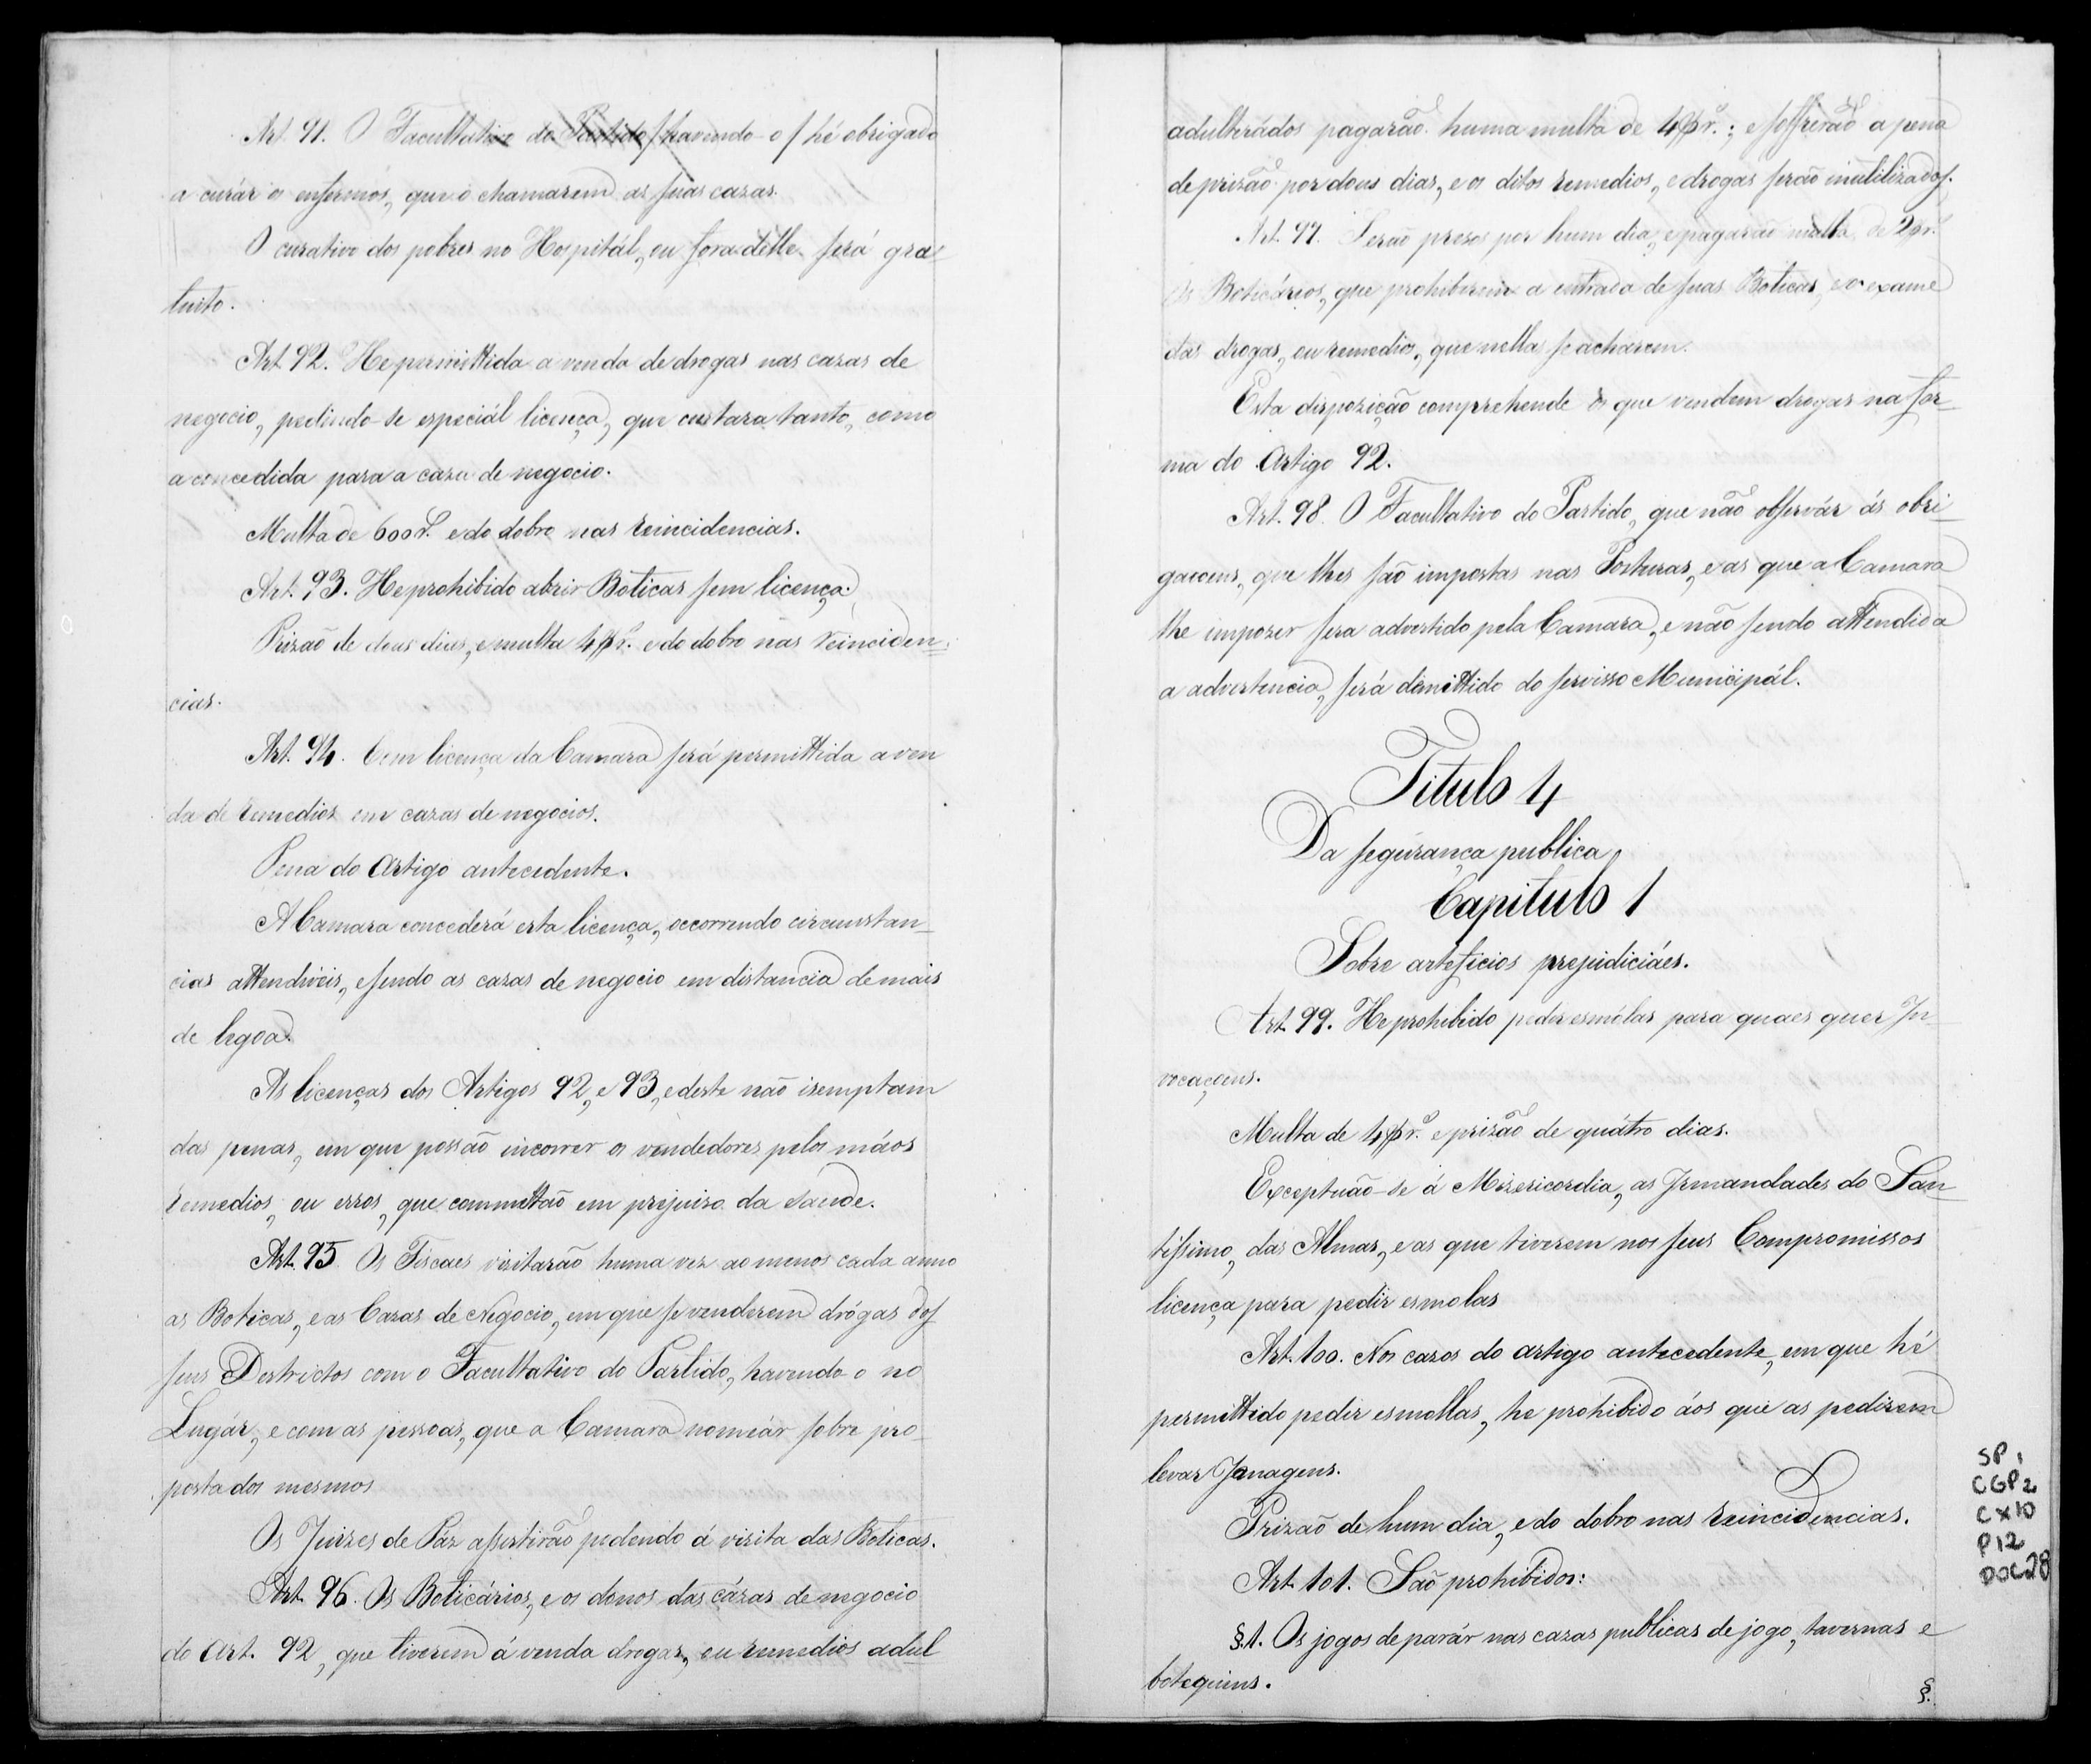 Art. 91. O Facultativo do Partido /havendo-o/ hé obrigado
a curár os enfermos, que o chamarem as suas cazas.
O curativo dos pobres no Hospitál, ou fora delle será gra-
tuito.
Art. 92. He permittida a venda de drogas nas cazas de
negocio, pedindo-se especiál licença, que custara tanto, como
a concedida para a caza de negocio.
Multa de 600 r.s e do dobro nas reincidencias.
Art. 93. He prohibido abrir Boticas sem licença.
Prizaõ de dous dias, e multa 4$r.s e do dobro nas reinciden-
cias.
Art. 94. Com licença da Camara será permittida a ven
da de remedios em cazas de negocios.
Pena do Artigo antecedente.
A Camara concederá esta licença, occorrendo circumstan-
cias attendiveis, e sendo as cazas de negocio em distancia de mais
de legoa.
As licenças dos Artigos 92, e 93, e deste não isemptam
das penas, em que possão incorrer os vendedores pelos máos
remedios, ou erros, que commettaõ em prejuizo da saude.
Art. 95. Os Fiscaes visitarão huma vez ao menos cada anno
as Boticas, e as Cazas de Negocio, em que se venderem drógas dos
seus Destrictos com o Facultativo do Partido, havendo-o no
Lugár, e com as pessoas, que a Camara nomeár sobre pro-
posta dos mesmos
Os Juizes de Páz assistiraõ podendo á vizita das Boticas.
Art. 96. Os Boticários, e os donos das cázas de negocio
do Art. 92, que tiverem á venda drogas, ou remedios adul
adulterádos pagaraõ huma multa de 4$r.s; e soffreraõ a pena
de prizaõ por dous dias, e os ditos remedios, e drogas serão inutilizados.
Art. 97. Serão presos por hum dia, e pagarão multa de 2$r.s
os Boticários, que prohibirem a entrada de suas Boticas, e o exame
das drogas, ou remedios, que nellas se acharem.
Esta dispozição comprehende os que vendem drogas na for-
ma do Artigo 92.
Art. 98. O Facultativo do Partido, que naõ observár ás obri-
gacoens, que lhes saõ impostas nas Posturas, e as que a Camara
lhe impozer sera advertido pela Camara, e naõ sendo attendida
a advertencia, será demittido do servisso Municipál.
Titulo 4
Da segurança publica,
Capitulo 1
Sobre arteficios prejudiciáes.
Art. 99. He prohibido pedir esmólas para quaes quer In-
vocaçoens.
Multa de 4$r.s e prizaõ de quátro dias.
Exceptuão-se á Mizericordia, as Irmandades do San-
tissimo, das Almas, e as que tiverem nos seus Compromissos
licença para pedir esmolas
Art. 100. Nos cazos do artigo antecedente, em que hé
permittido pedir esmollas, he prohibido áos que as pedirem
levar Imagens.
Prizaõ de hum dia, e do dobro nas reincidencias.
Art. 101. Saõ prohibidos:
§.1. Os jogos de parár nas cazas publicas de jogo, tavernas e
botequins.
§.
SP1
CGP2
CX10
P12
DOC28